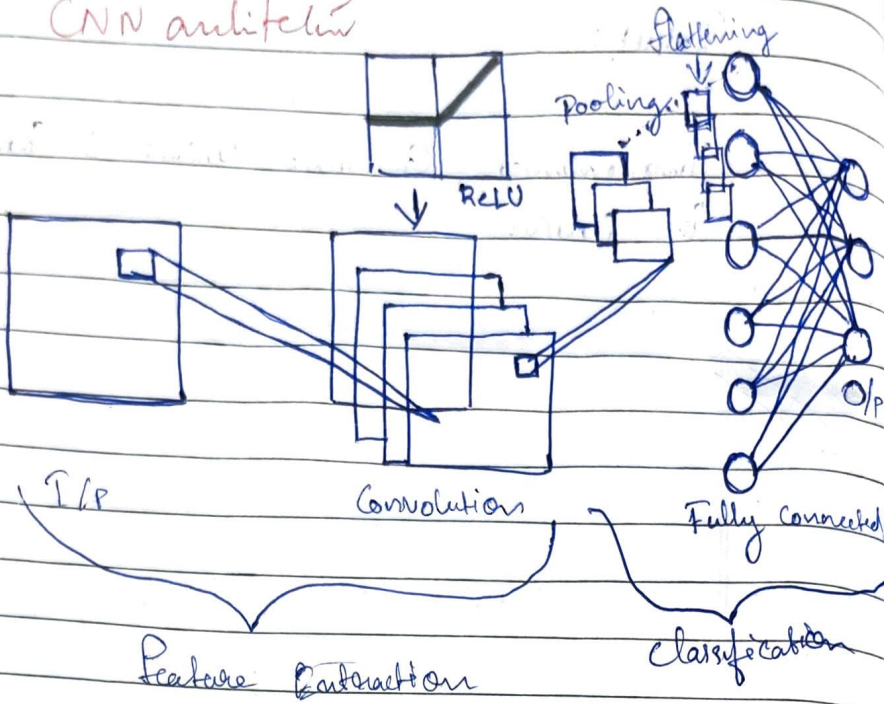 CNN
flattening
Pooling
ReLU
I/P
Convolution
O/P
Fully Connected
Feature Extraction
Classification